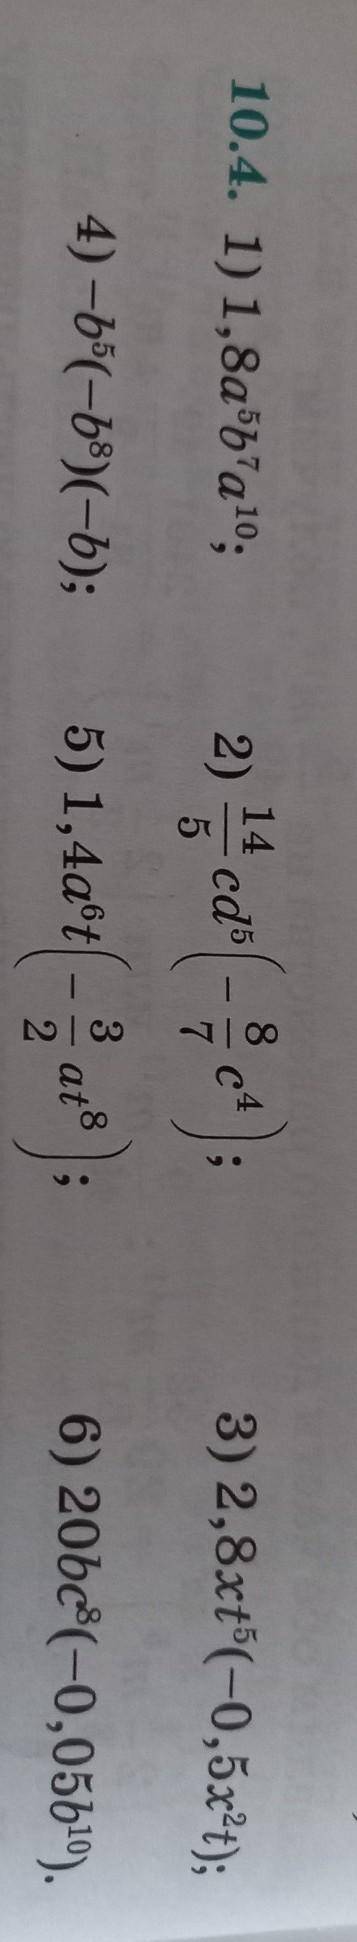 10.4. 1) 1,8a⁵b⁷a¹⁰; 2) 14/5 cd⁵(−8/7 c⁴); 3) 2,8xt⁵(−0,5x²t);
4) −b⁵(−b⁸)(−b); 5) 1,4a⁶t(−3/2 at⁸); 6) 20bc⁸(−0,05b¹⁰).